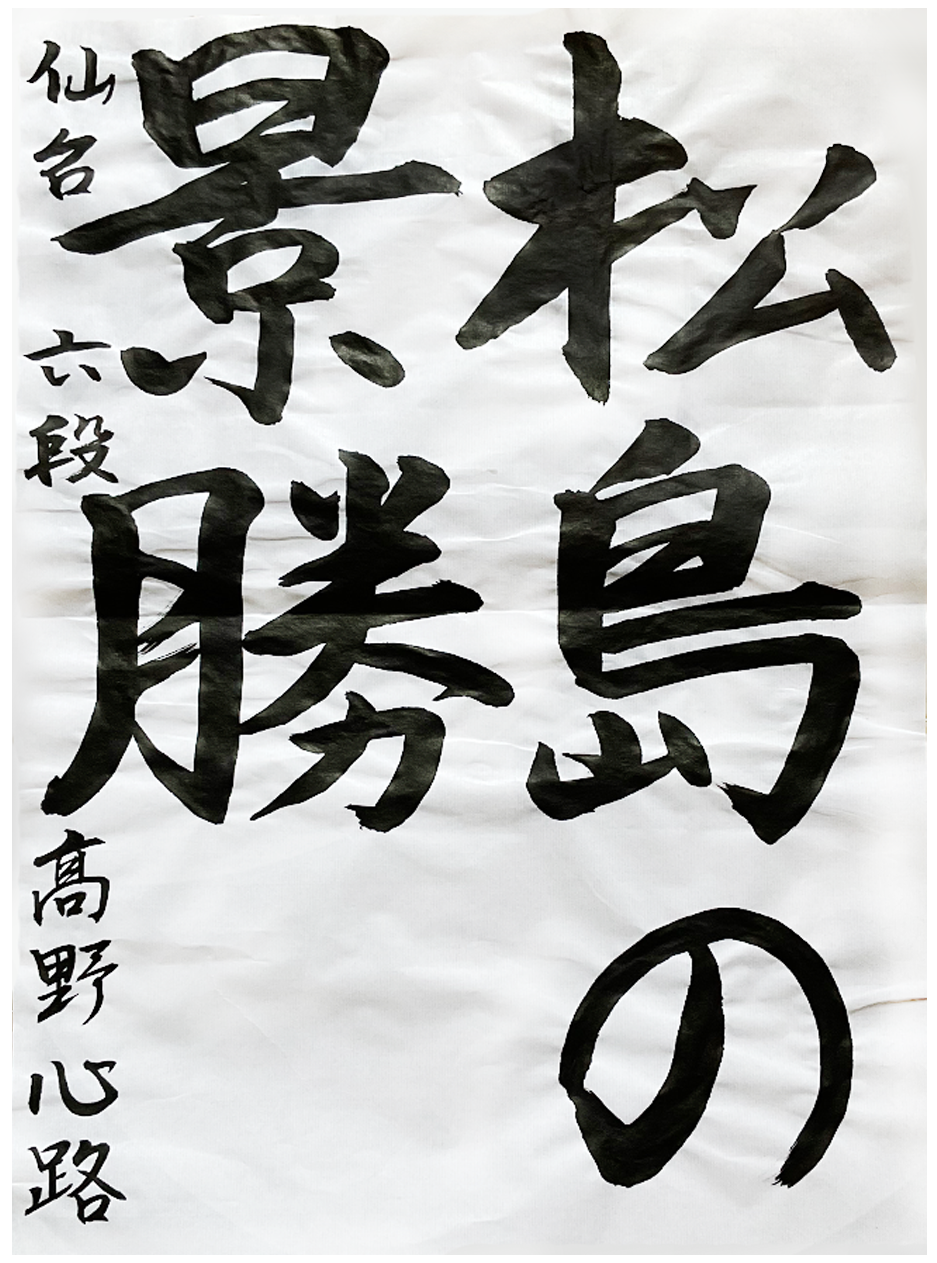 松島の
景勝
仙台 六段 高野 心路